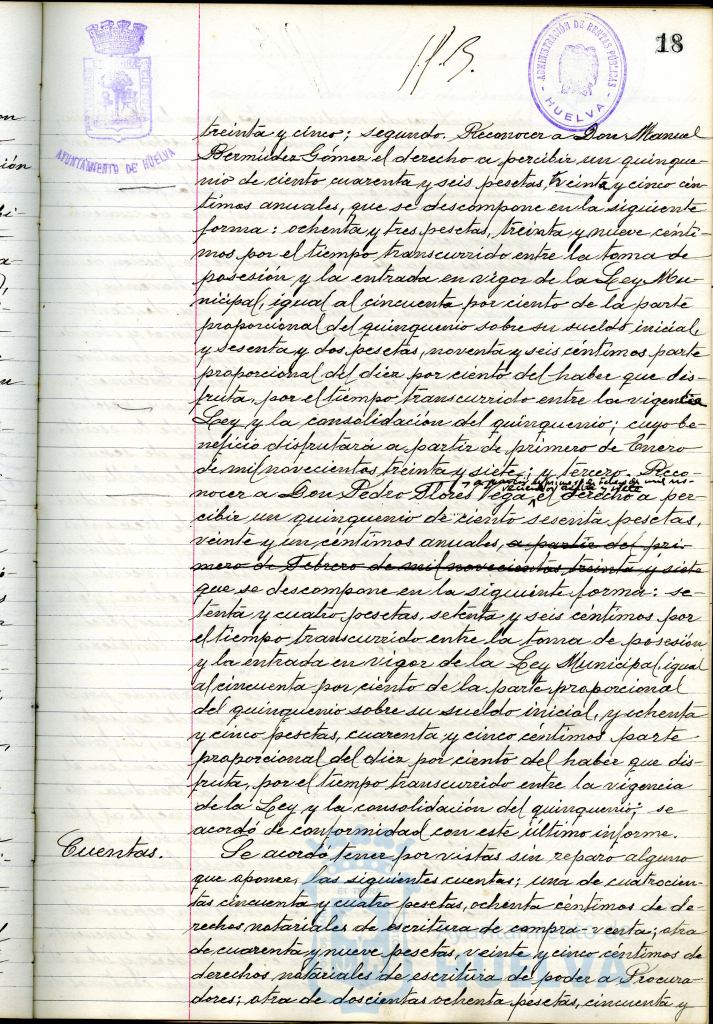 18
ADMINISTRACIÓN DE RENTAS PÚBLICAS
HUELVA
AYUNTAMIENTO DE HUELVA
treinta y cinco; segundo. Reconocer a Don Manuel
Bermúdez Gómez el derecho a percibir un quinque-
nio de ciento cuarenta y seis pesetas, treinta y cinco cén-
timos anuales, que se descompone en la siguiente
forma: ochenta y tres pesetas, treinta y nueve cénti-
mos por el tiempo transcurrido entre la toma de
posesión y la entrada en vigor de la Ley Mu-
nicipal, igual al cincuenta por ciento de la parte
proporcional del quinquenio sobre su sueldo inicial,
y sesenta y dos pesetas, noventa y seis céntimos parte
proporcional del diez por ciento del haber que dis-
fruta, por el tiempo transcurrido entre la vigencia
Ley y la consolidación del quinquenio; cuyo be-
neficio disfrutará a partir de primero de Enero
de mil novecientos treinta y siete; y tercero. Reco-
nocer a Don Pedro Flores Vega, el derecho a per-
cibir un quinquenio de ciento sesenta pesetas,
veinte y un céntimos anuales, a partir del pri-
mero de Febrero de mil novecientos treinta y siete
que se descompone en la siguiente forma: se-
tenta y cuatro pesetas, setenta y seis céntimos por
el tiempo transcurrido entre la toma de posesión
y la entrada en vigor de la Ley Municipal, igual
al cincuenta por ciento de la parte proporcional
del quinquenio sobre su sueldo inicial, y ochenta
y cinco pesetas, cuarenta y cinco céntimos parte
proporcional del diez por ciento del haber que dis-
fruta, por el tiempo transcurrido entre la vigencia
de la Ley y la consolidación del quinquenio; se
acordó de conformidad con este último informe.
Cuentas.
Se acordó tener por vistas sin reparo alguno
que oponer, las siguientes cuentas; una de cuatrocien-
tas cincuenta y cuatro pesetas, ochenta céntimos de de-
rechos notariales de escritura de compra-venta; otra
de cuarenta y nueve pesetas, veinte y cinco céntimos de
derechos notariales de escritura de poder a Procura-
dores; otra de doscientas ochenta pesetas, cincuenta y